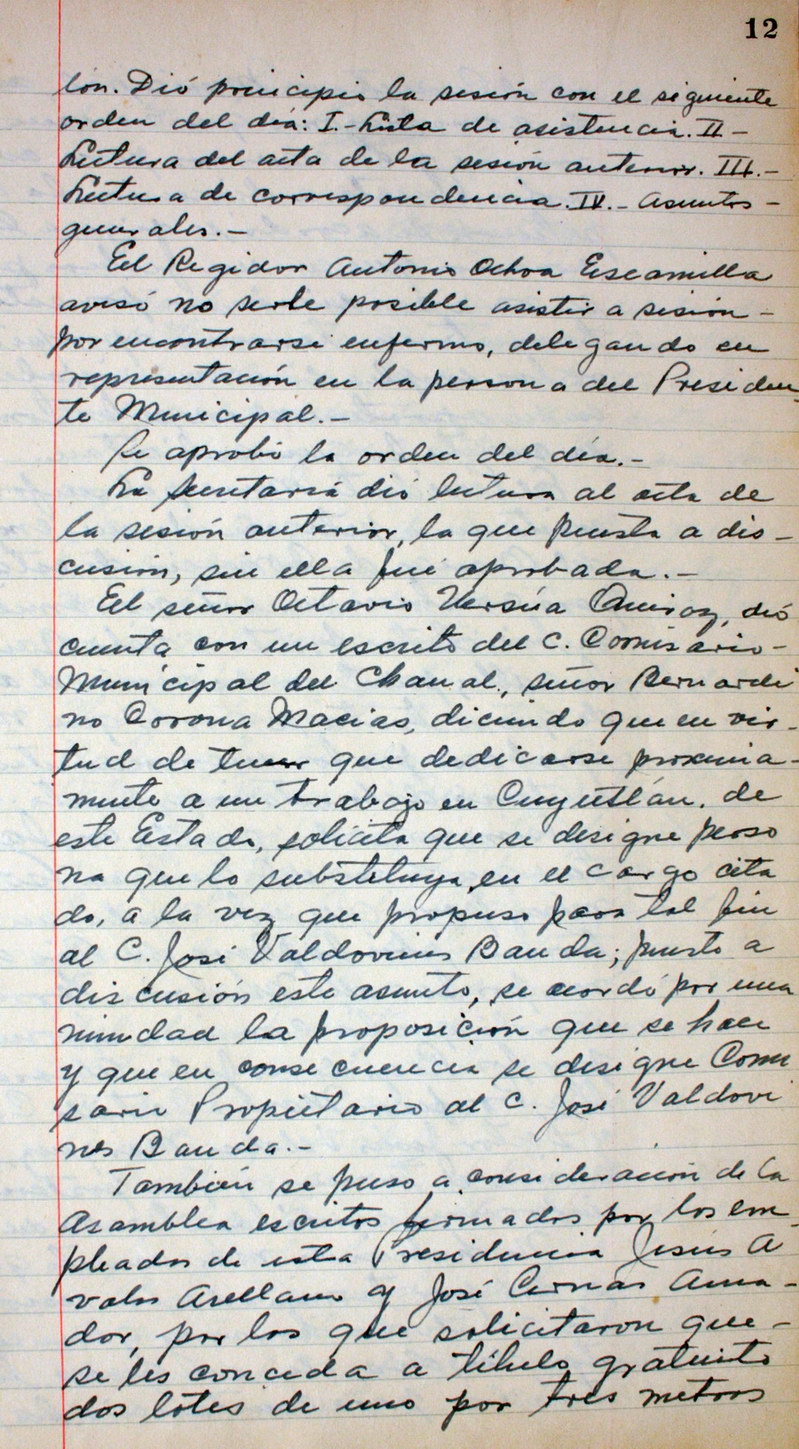 12
lón. Dió principio la sesión con el siguiente
orden del día: I.- Lista de asistencia. II -
Lectura del acta de la sesión anterior. III.-
Lectura de correspondencia. IV.- Asuntos -
generales.-
El Regidor Antonio Ochoa Escamilla
avisó no serle posible asistir a sesión -
por encontrarse enfermo, delegando en
representación en la persona del Presiden-
te Municipal.-
Se aprobó la orden del día.-
La secretaría dió lectura al acta de
la sesión anterior, la que puesta a dis-
cusión, sin ella fué aprobada.-
El señor Octavio Ursúa Quiroz, dió
cuenta con un escrito del C. Comisario-
Municipal del Chanal, señor Bernardi
no Corona Macias, diciendo que en vir-
tud de tener que dedicarse proxima-
mente a un trabajo en Cuyutlán, de
este Estado, solicita que se designe perso
na que lo substituya en el cargo cita
do, a la vez que propuso para tal fin
al C. José Valdovines Banda; puesto a
discusión este asunto, se acordó por una
nimidad la proposición que se hace
y que en consecuencia se designe Comi
sario Propietario al C. José Valdovi
nes Banda.-
También se puso a consideración de la
Asamblea escritos firmados por los em-
pleados de esta Presidencia Jesús A
valos Arellano y José Cernas Ama-
dor, por los que solicitaron que-
se les conceda a título gratuito
dos lotes de uno por tres metros